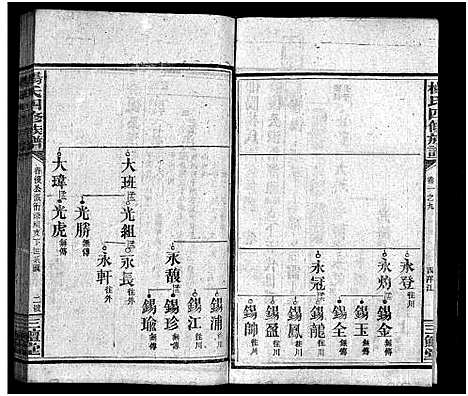 楊氏四修族譜
卷一之九
四
三鱣堂
永登 往川
永灼 無傳
永冠 無傳
錫金 無傳
錫玉 無傳
錫全 無傳
錫龍 往川
錫鳳 往川
錫盈 往川
錫帥 往川
大班
大瑋
光組
光勝 無傳
光虎 無傳
永馥
永長 往川
永軒 往外
錫浦 往川
錫江 往川
錫珍 無傳
錫瑜 無傳
楊氏四修族譜
三鱣堂